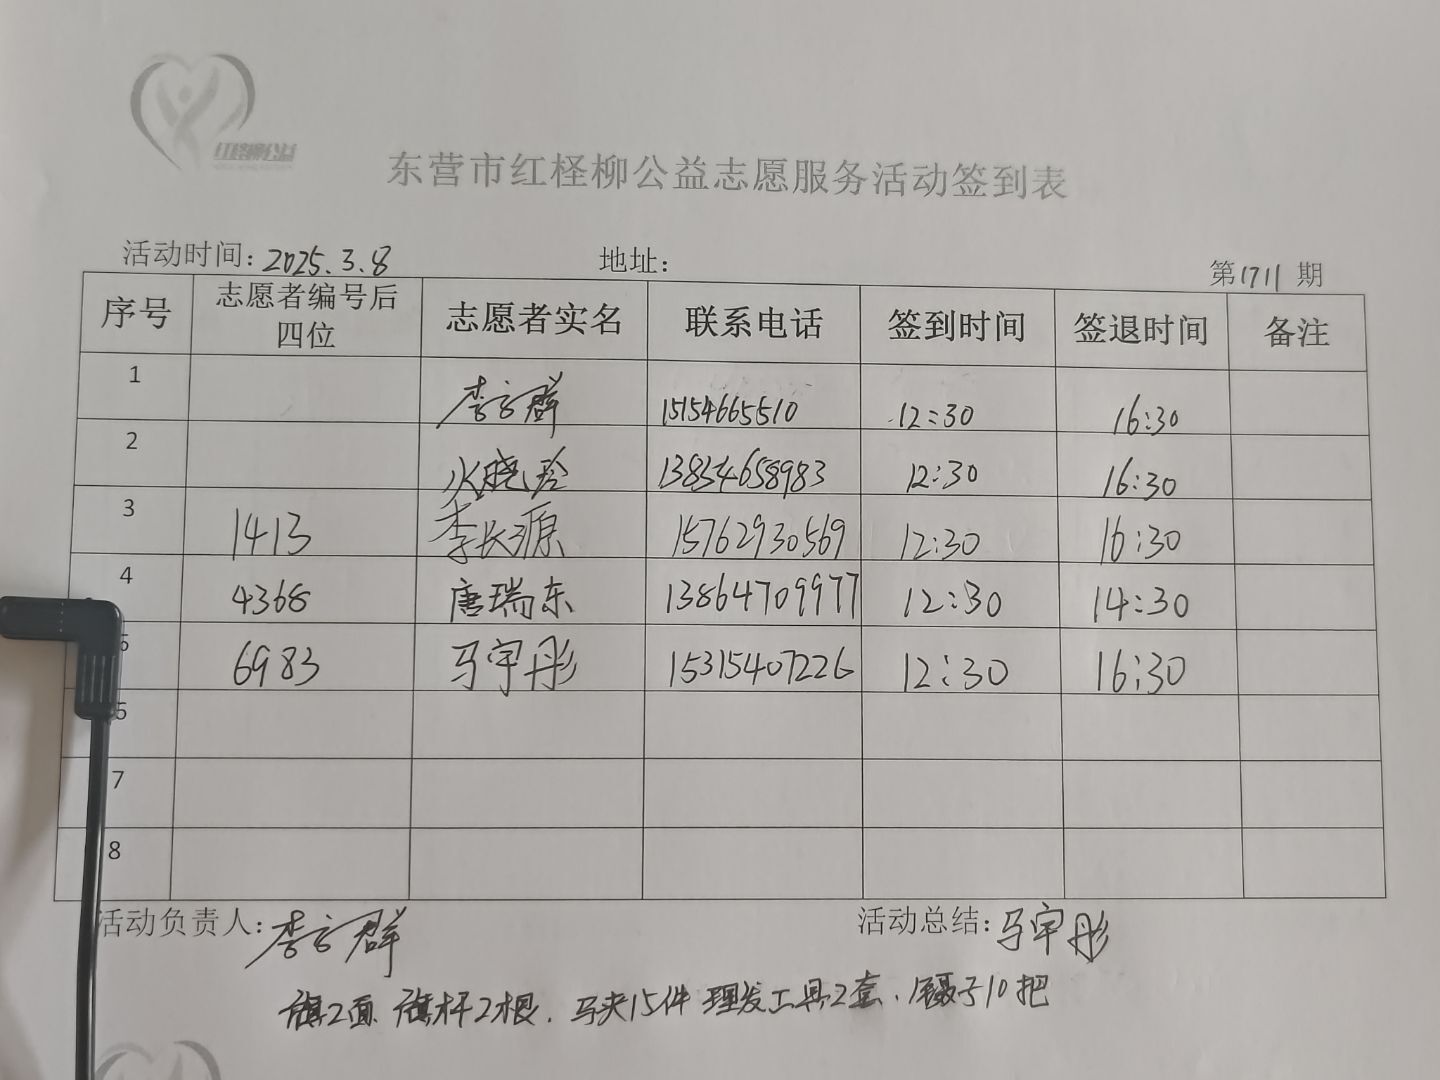 红柽柳公益
东营市红柽柳公益志愿服务活动签到表
活动时间：2025.3.8 地址： 第1711 期
序号 志愿者编号后四位 志愿者实名 联系电话 签到时间 签退时间 备注
1 李立群 15154665510 12:30 16:30
2 晓玲 13854658983 12:30 16:30
3 1413 李长源 15762930569 12:30 16:30
4 4368 唐瑞东 13864709977 12:30 14:30
5 6983 马宇彤 15315407226 12:30 16:30
6
7
8
活动负责人：李立群 活动总结：马宇彤
旗2面 旗杆2根. 马夹15件 理发工具2套、镊子10把